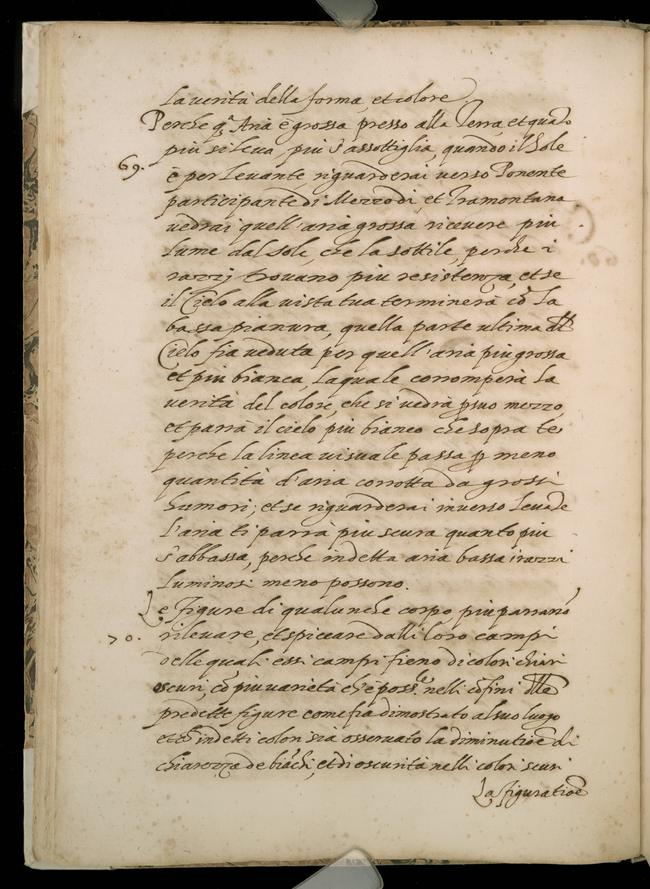 La verità della forma, et colore
Perche q.ª Aria è grossa presso alla Terra, et quãto
69. più si leva, più s'assottiglia, quando il Sole
è per levante, riguarderai verso Ponente
participante di Mezzodi, et Tramontana
vedrai quell'aria grossa ricevere più
lume dal sole, che la sottile, perche i
razzij trovano più resistenza, et se
il Cielo alla vista tua terminerà cõ la
bassa pianura, quella parte ultima dl
Cielo fia veduta per quell'aria più grossa
et più bianca, laquale corromperà la
verità del colore, che si vedrà p suo mezzo,
et parrà il cielo più bianco che sopra te,
perche la linea visuale passa p meno
quantità d'aria corrotta da grossi
humori; et se riguarderai inverso levãte
l'aria ti parrà più scura quanto più
s'abbassa, perche in detta aria bassa i razzi
luminosi meno possono.
Le figure di qualunche corpo più parrano
70. rilevare, et spiccare dalli loro campi
delle quali essi campi fieno di colori chiari
scuri, cõ più varietà che è poss.le nelli cõfini dlle
predette figure come fia dimostrato al suo luogo
et ch̃ in detti colori sia osservato la diminutioẽ di
chiarezza de biãchi, et di oscurità nelli colori scuri
La figuratioẽ